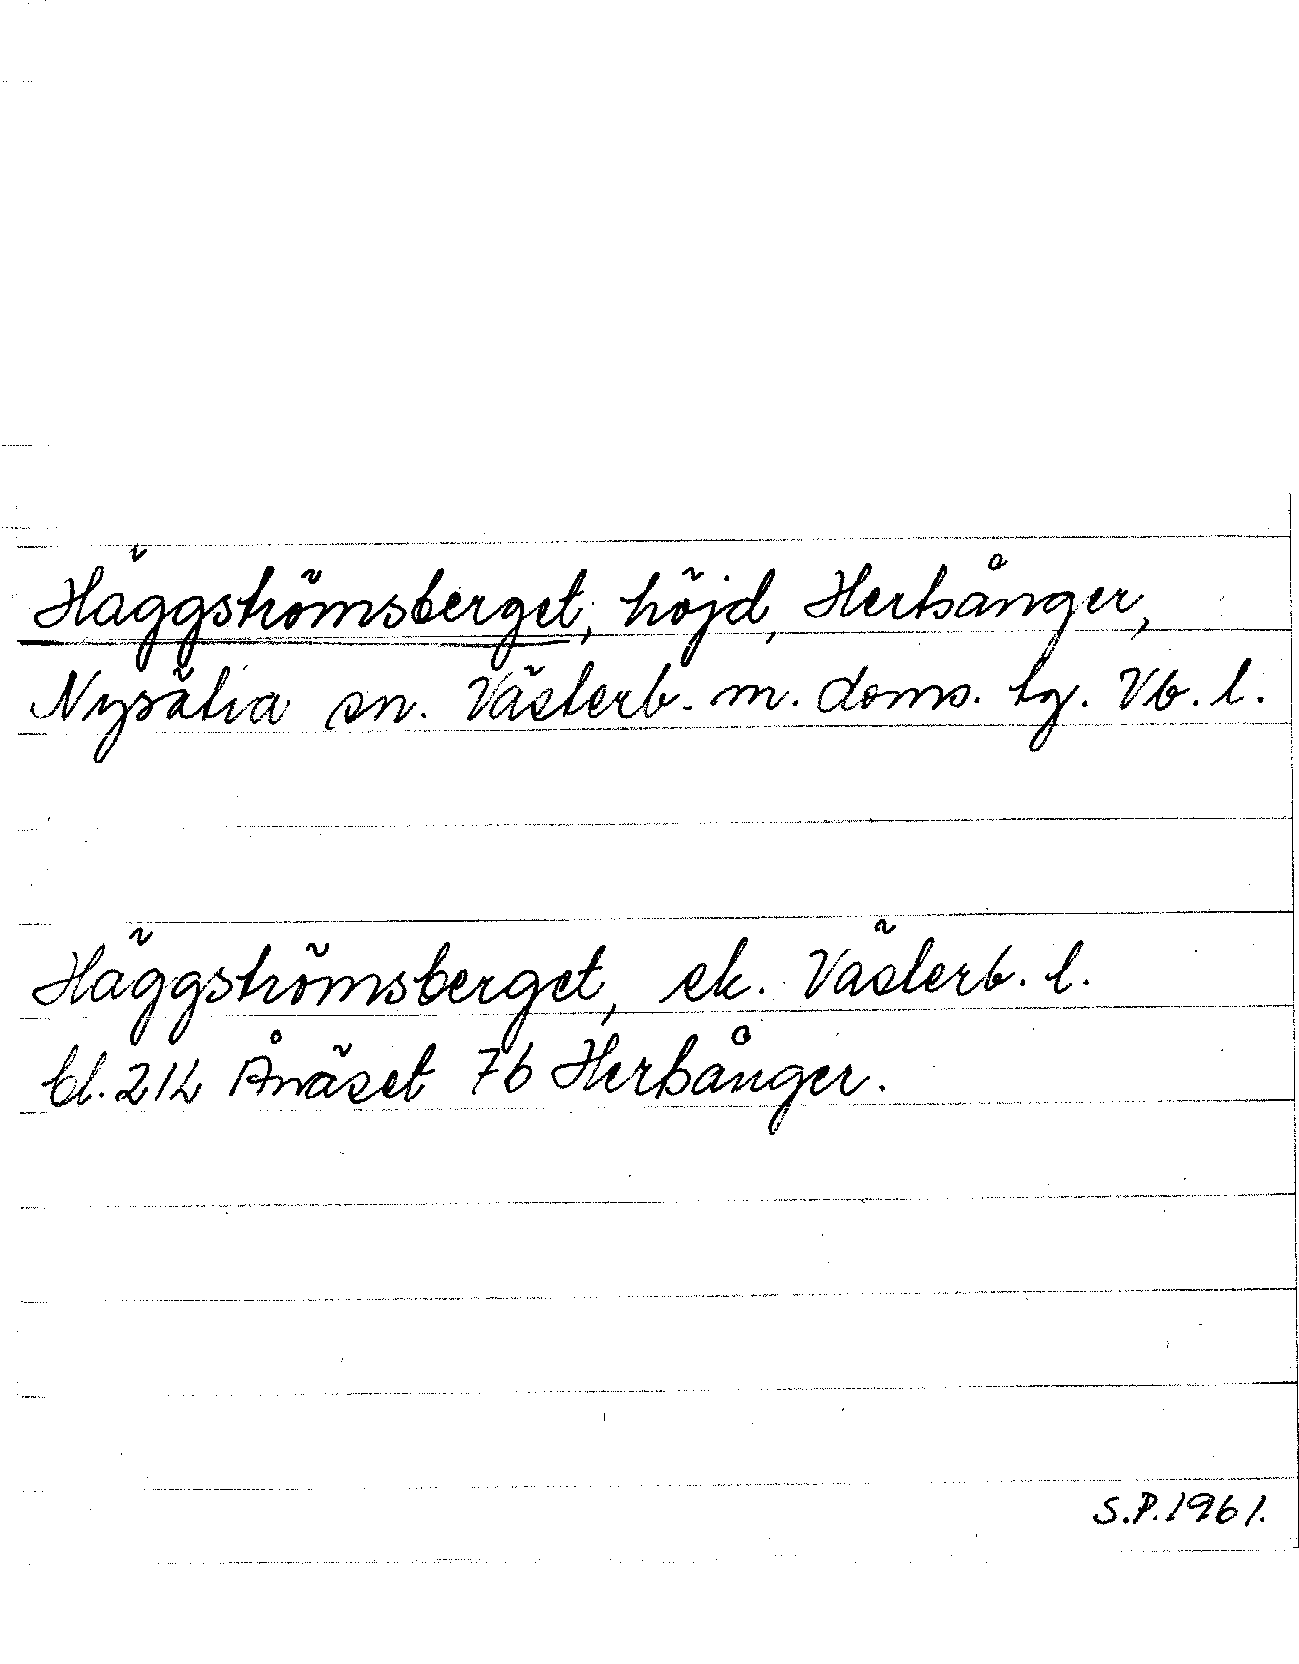 Häggströmsberget, höjd, Hertsånger,
Nysätra sn. Västerb. m. doms. tg. Vb. l.
Häggströmsberget, ek. Västerb. l.
bl. 21L Ånäset 7b Hertsånger.
S.P. 1961.